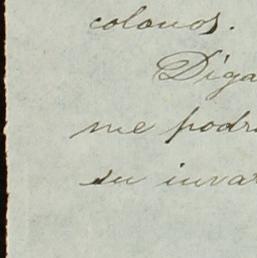 colonos.
Diga
me podr
su inva